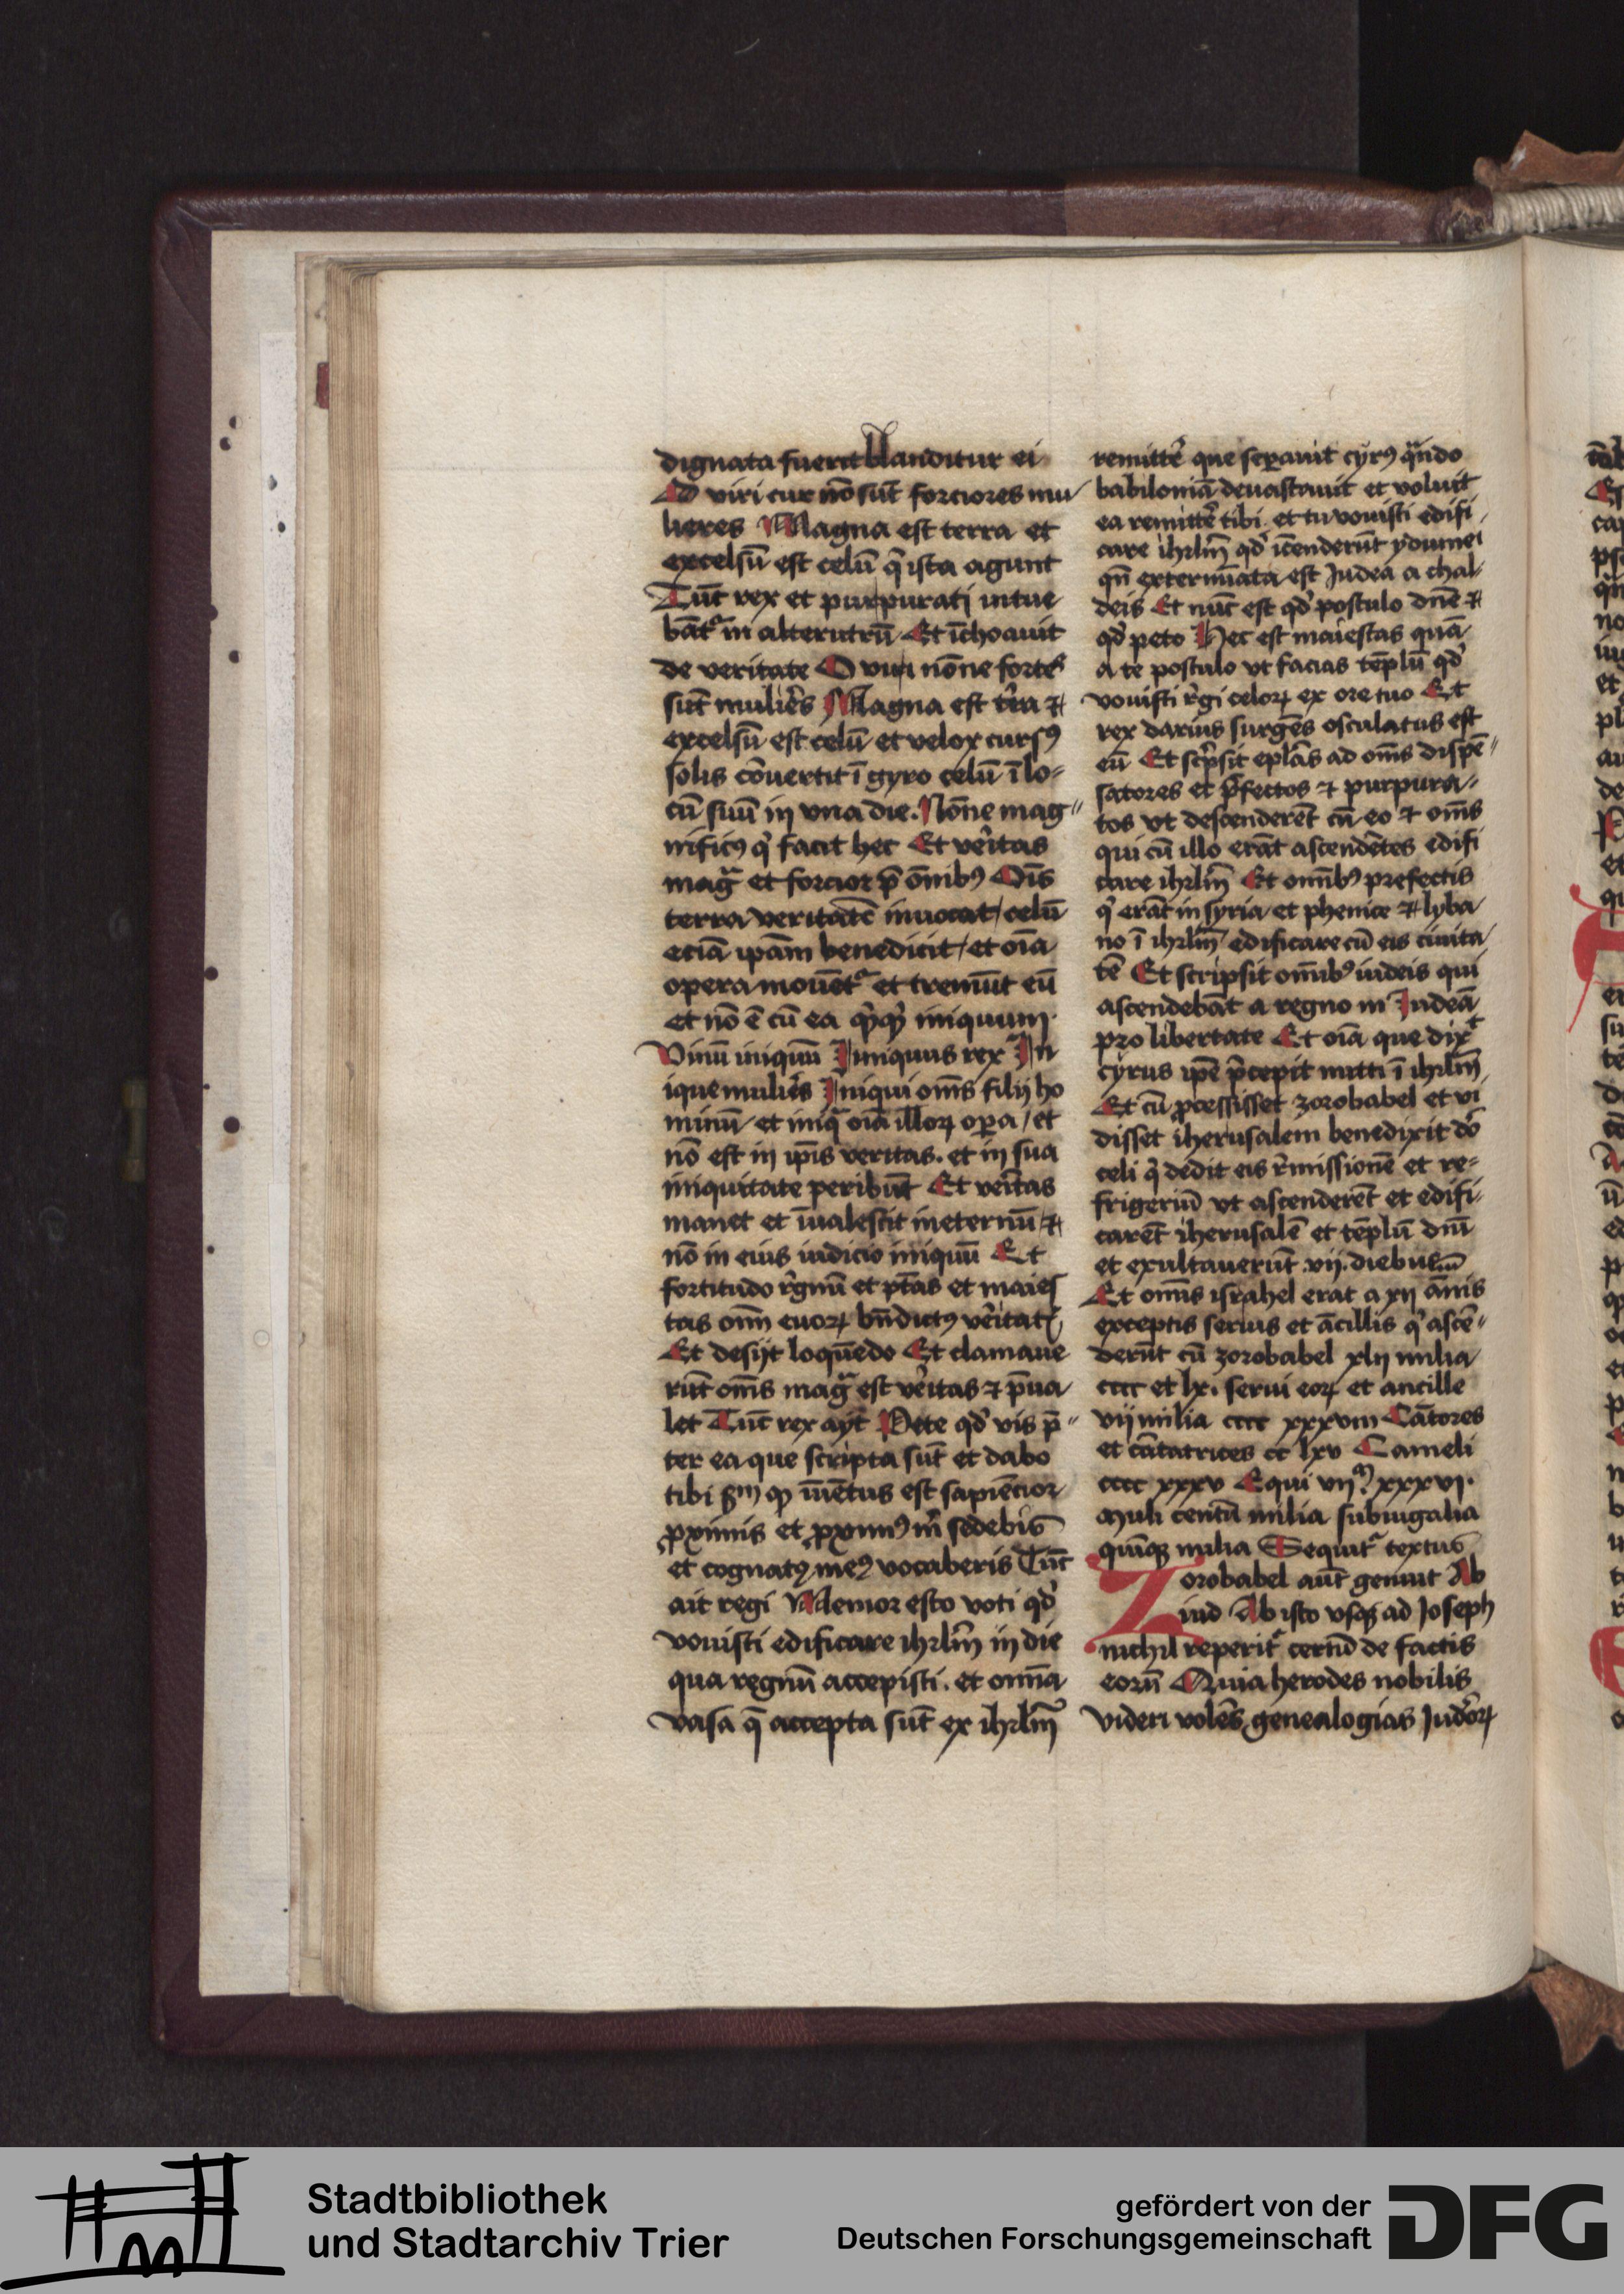 dignata fuerit blanditur ei
Ad viri cur nō sūt forciores mu
lieres Magna est terra et
excelsū est celū q̄ ista agunt
Tūc rex et purpurati intue
bāt᷑ in alterutrū Et īchoauit
de veritate O viri nōne fortes
sūt mulier̄s Magna est t̄ra ⁊
excelsū est celū et velox cursꝰ
solis cōuertit ī gyro celū ī lo⸗
cū suū in vna die. Nōne mag〃
nificꝰ qͥ facit hec Et vēritas
magͣ et forcior p̄ ōmibꝰ Oīs
terra veritatē inuocat / celū
eciā ip̄am benedicit / et oīa
opera mouēt᷑ et tremūt eū
et nō ē cū ea qͥcqͣ iniquum
Vinū iniquū Iniquus rex In
ique mulier̄s Iniqui om̄s filij ho
minū et iniqͣ oīa illoꝝ oꝑa / et
nō est in ip̄is veritas. et in sua
iniquitate peribūt Et vēritas
manet et īualescit in eternū ⁊
nō in eius iudicio iniquū Et
fortitudo r̄gnū et ptās et maies
tas om̄ euoꝝ bn̄dictꝰ vēritatꝭ
Et desijt loquēdo Et clamaue
rūt om̄s magͣ est vēritas ⁊ p̄ua
let Tūc rex ayt Pete qd̓ vis p̄〃
ter ea que scripta sūt et dabo
tibi ẜm qͦ īuētus est sapiēcior
ꝓximis et ꝓximꝰ m̄ sedebis
et cognatꝰ meꝰ vocaberis Tūc
ait regi Memor esto voti qd̓
vouisti edificare ihrl̄m in die
qua regnū accepisti. et omīa
vasa q̄ accepta sūt ex ihrl̄m
remitter̄ que seꝑauit cyrꝰ qn̄do
babiloniā deuastauit et voluit
ea remitter̄ tibi. et tu vouisti edifi
care ihrl̄m qd̓ īcenderūt ydumei
qn̄ exterminata est Iudea a chal
deis Et nūc est qd̓ postulo dn̄e ⁊
qd̓ peto Hec est maiestas quā
a te postulo vt facias tēplū qd̓
vouisti r̄gi celoꝝ ex ore tuo Et
rex darius surgēs osculatus est
eū Et scͥpsit ep̄las ad om̄s dispē〃
satores et p̄fectos ⁊ purpura〃
tos vt descenderēt cū eo ⁊ om̄s
qui cū illo erāt ascendētes edifi
care ihrl̄m Et omībꝰ prefectis
qͥ erāt in syria et phenice ⁊ lyba
no ī ihrl̄m edificare cū eis ciuita
tē Et scripsit omībꝰ iudeis qui
ascendebāt a regno in Iudeā
pro libertate Et oīa que dixͭ
cyrus ip̄e p̄cepit mitti ī ihrl̄m
Et cū ꝓcessisset zorobabel et vi
disset iherusalem benedixit dō
celi qͥ dedit eis r̄missionē et re⸗
frigeriū vt ascenderēt et edifi
carēt iherusalē et tēplū dnī
et exultauerūt .vij. diebus
Et om̄is israhel erat a xij ānis
exceptis seruis et ācillis qͥ ascē〃
derūt cū zorobabel xlij milia
cccc et lx. serui eoꝝ et ancille
vij milia cccc xxxvm Cātores
et cātatrices cc lxv Cameli
cccc xxxv Equi vijᵐ xxxvi.
Muli centū milia subiugalia
quīqꝫ milia Sequit᷑ textus
Zorobabel aūt genuit Ab
iud Ab isto vsqꝫ ad Joseph
nichil reperit᷑ certū de factis
eorū Quia herodes nobilis
videri volēs genealogias Iudeoꝝ
Stadtbibliothek
und Stadtarchiv Trier
gefördert von der
Deutschen Forschungsgemeinschaft
DFG